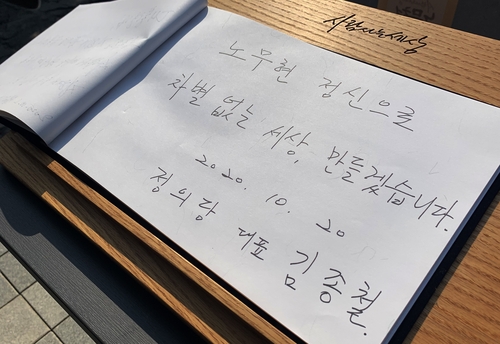 사람사는세상
노무현 정신으로
차별 없는 세상, 만들겠습니다.
2020. 10. 20
정의당 대표 김종철.